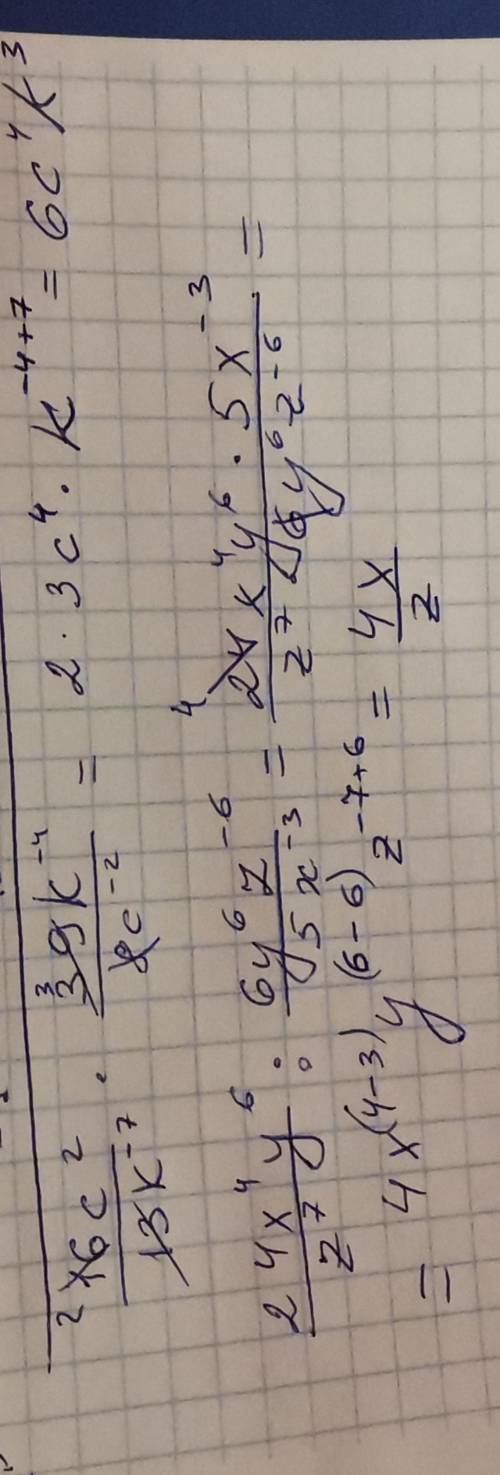 2 16c² / 13k⁻⁷ · 3 39k⁻⁴ / 8c⁻² = 2 · 3c⁴ · k⁻⁴⁺⁷ = 6c⁴k³
24x⁴y⁶ / z⁷ : 6y⁶z⁻⁶ / 5x⁻³ = 4 24x⁴y⁶ · 5x⁻³ / z⁷ 6y⁶z⁻⁶ =
= 4x⁽⁴⁻³⁾y⁽⁶⁻⁶⁾z⁻⁷⁺⁶ = 4x / z